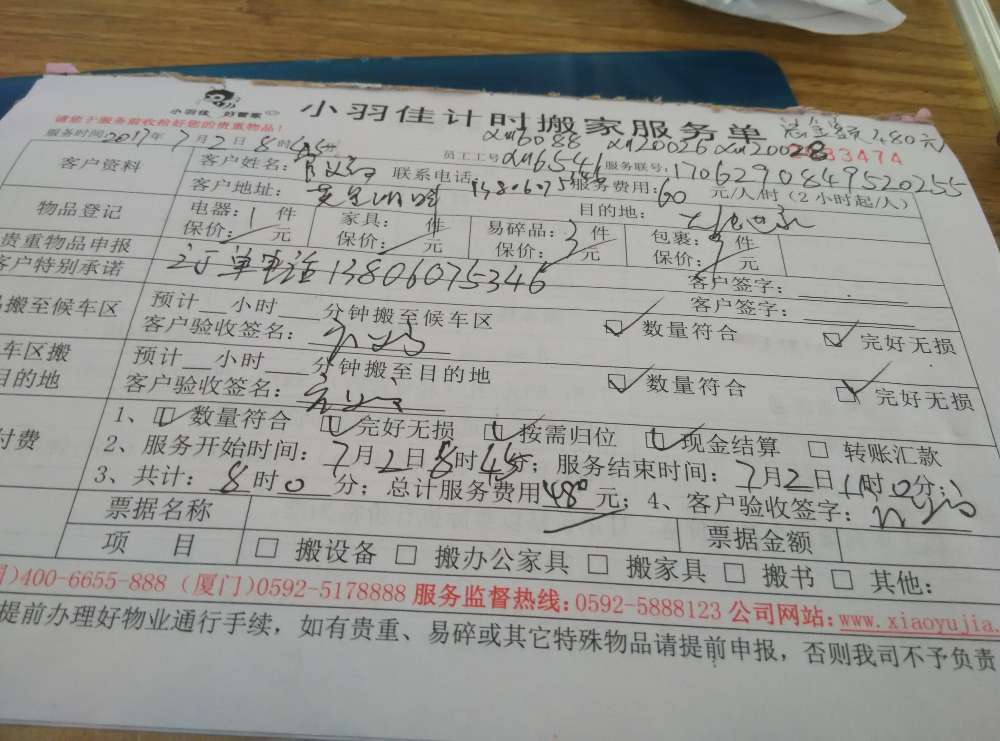 小羽佳 好管家
小羽佳计时搬家服务单 总金额480元
请您于服务前收拾好您的贵重物品!
xm6088 xm20026 xm20028
3474
服务时间:2017年7月2日8时45分 员工工号xm6546 服务联号:1706290849520255
客户资料 客户姓名: 联系电话:13806075346 服务费用:60元/人/时(2小时起/人)
客户地址: 目的地:
物品登记 电器:1件 家具: 件 易碎品:3件 包裹: 件
保价: 元 保价: 元 保价: 元 保价: 元
贵重物品申报 订单电话13806075346 客户签字:
客户特别承诺 客户签字:
搬至候车区 预计 小时 分钟搬至候车区 数量符合 完好无损
客户验收签名:
车区搬 预计 小时 分钟搬至目的地 数量符合 完好无损
目的地 客户验收签名:
付费 1、数量符合 完好无损 按需归位 现金结算 转账汇款
2、服务开始时间:7月2日8时45分;服务结束时间:7月2日11时0分;
3、共计:8时0分;总计服务费用480元;4、客户验收签字:
票据名称 票据金额
项 目 搬设备 搬办公家具 搬家具 搬书 其他:
)400-6655-888 (厦门)0592-5178888 服务监督热线:0592-5888123 公司网站:www.xiaoyujia.
提前办理好物业通行手续,如有贵重、易碎或其它特殊物品请提前申报,否则我司不予负责